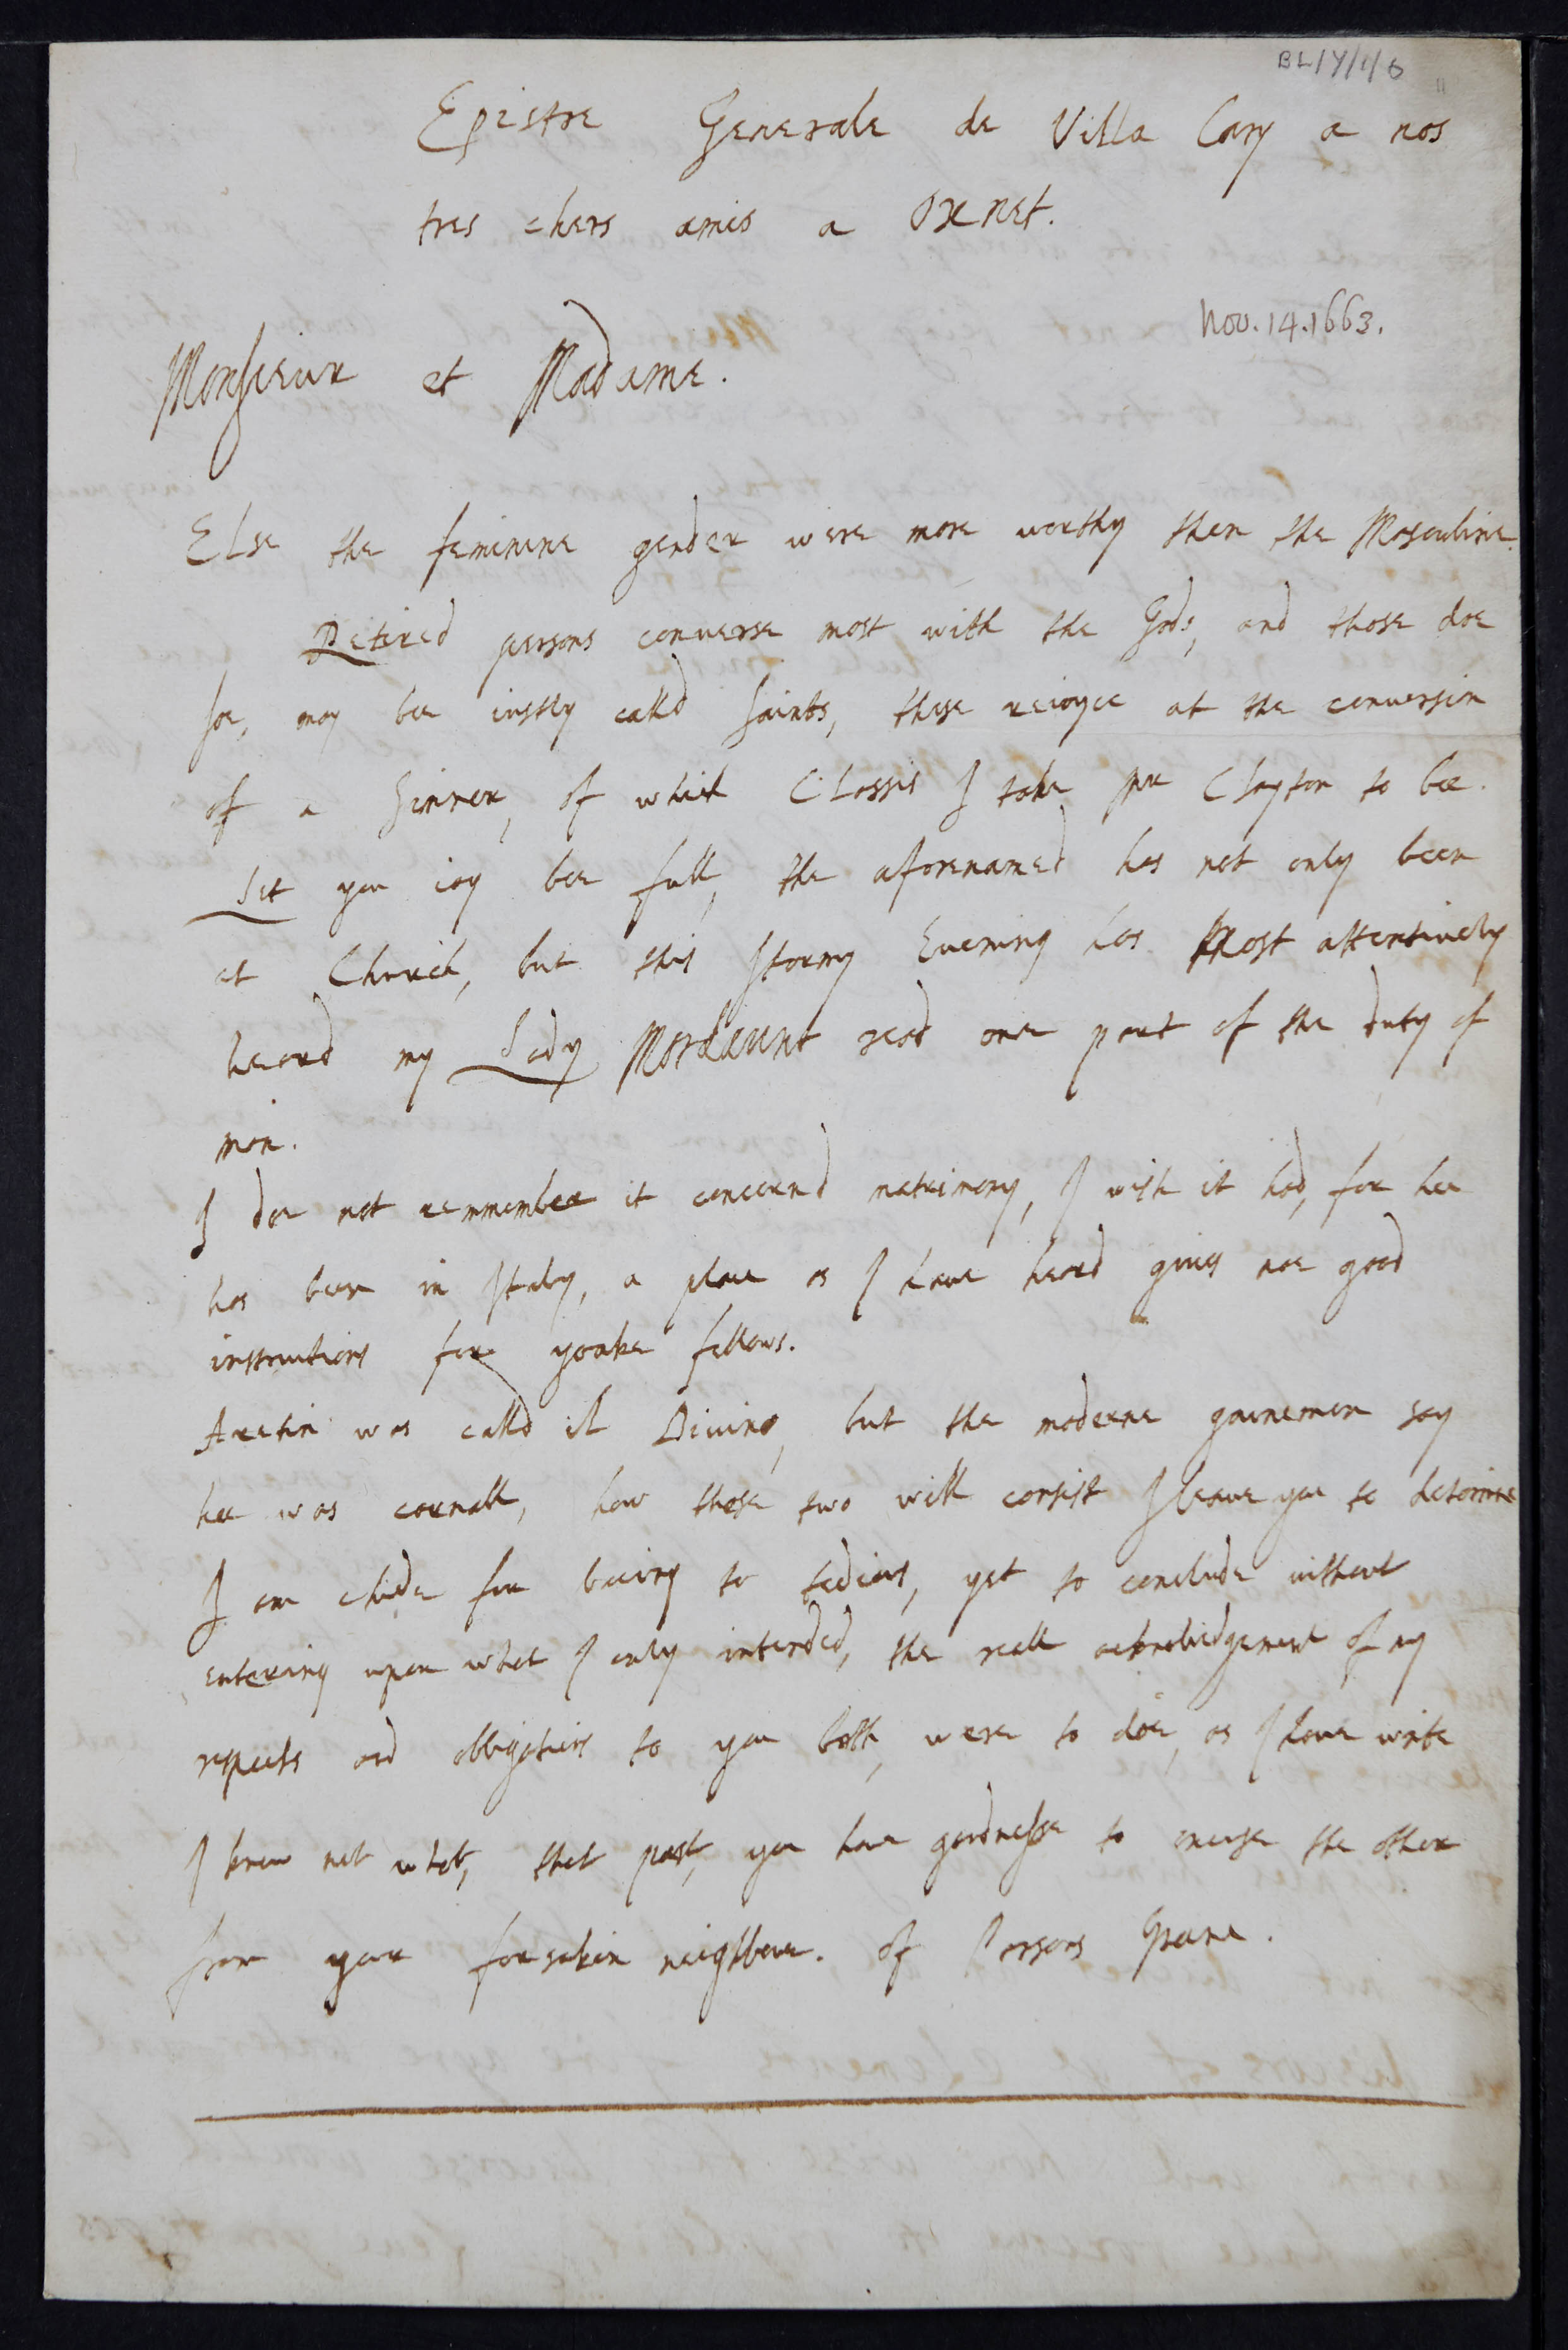 BL/Y/1/6
11
Epistre Generale de Villa Cary a nos
tres chers amis a Oxnet.
Nov. 14. 1663.
Monsieur et Madame.
Else the feminine gender were more worthy then the Masculine.
Retired persons converse most with the Gods, and those doe
soe, may bee iustly calld Saints, these reioyce at the conversion
of a Sinner, of which Classis I take Mr Clayton to bee.
Let you ioy bee full, the aforenamed has not only been
at Church, but this stormy Evening has Most attentively
heard my Lady Mordaunt read one part of the duty of
man.
I doe not remmember it concernd matrimony, I wish it had, for hee
has been in Italy, a place as I have heard gives noe good
instructions for yoake fellows.
Aretin was calld il Divino, but the moderne gownemen say
hee was carnall, how those two will consist I leave you to determine
I am chide for beeing to tedious, yet to conclude without
entering upon what I only intended, the reall acknoledgement of my
respects and obligations to you both, were to doe, as I have write
I know not what, that past, you have goodnesse to excuse the other
from your forsaken neighbour. of Parsons Greene.